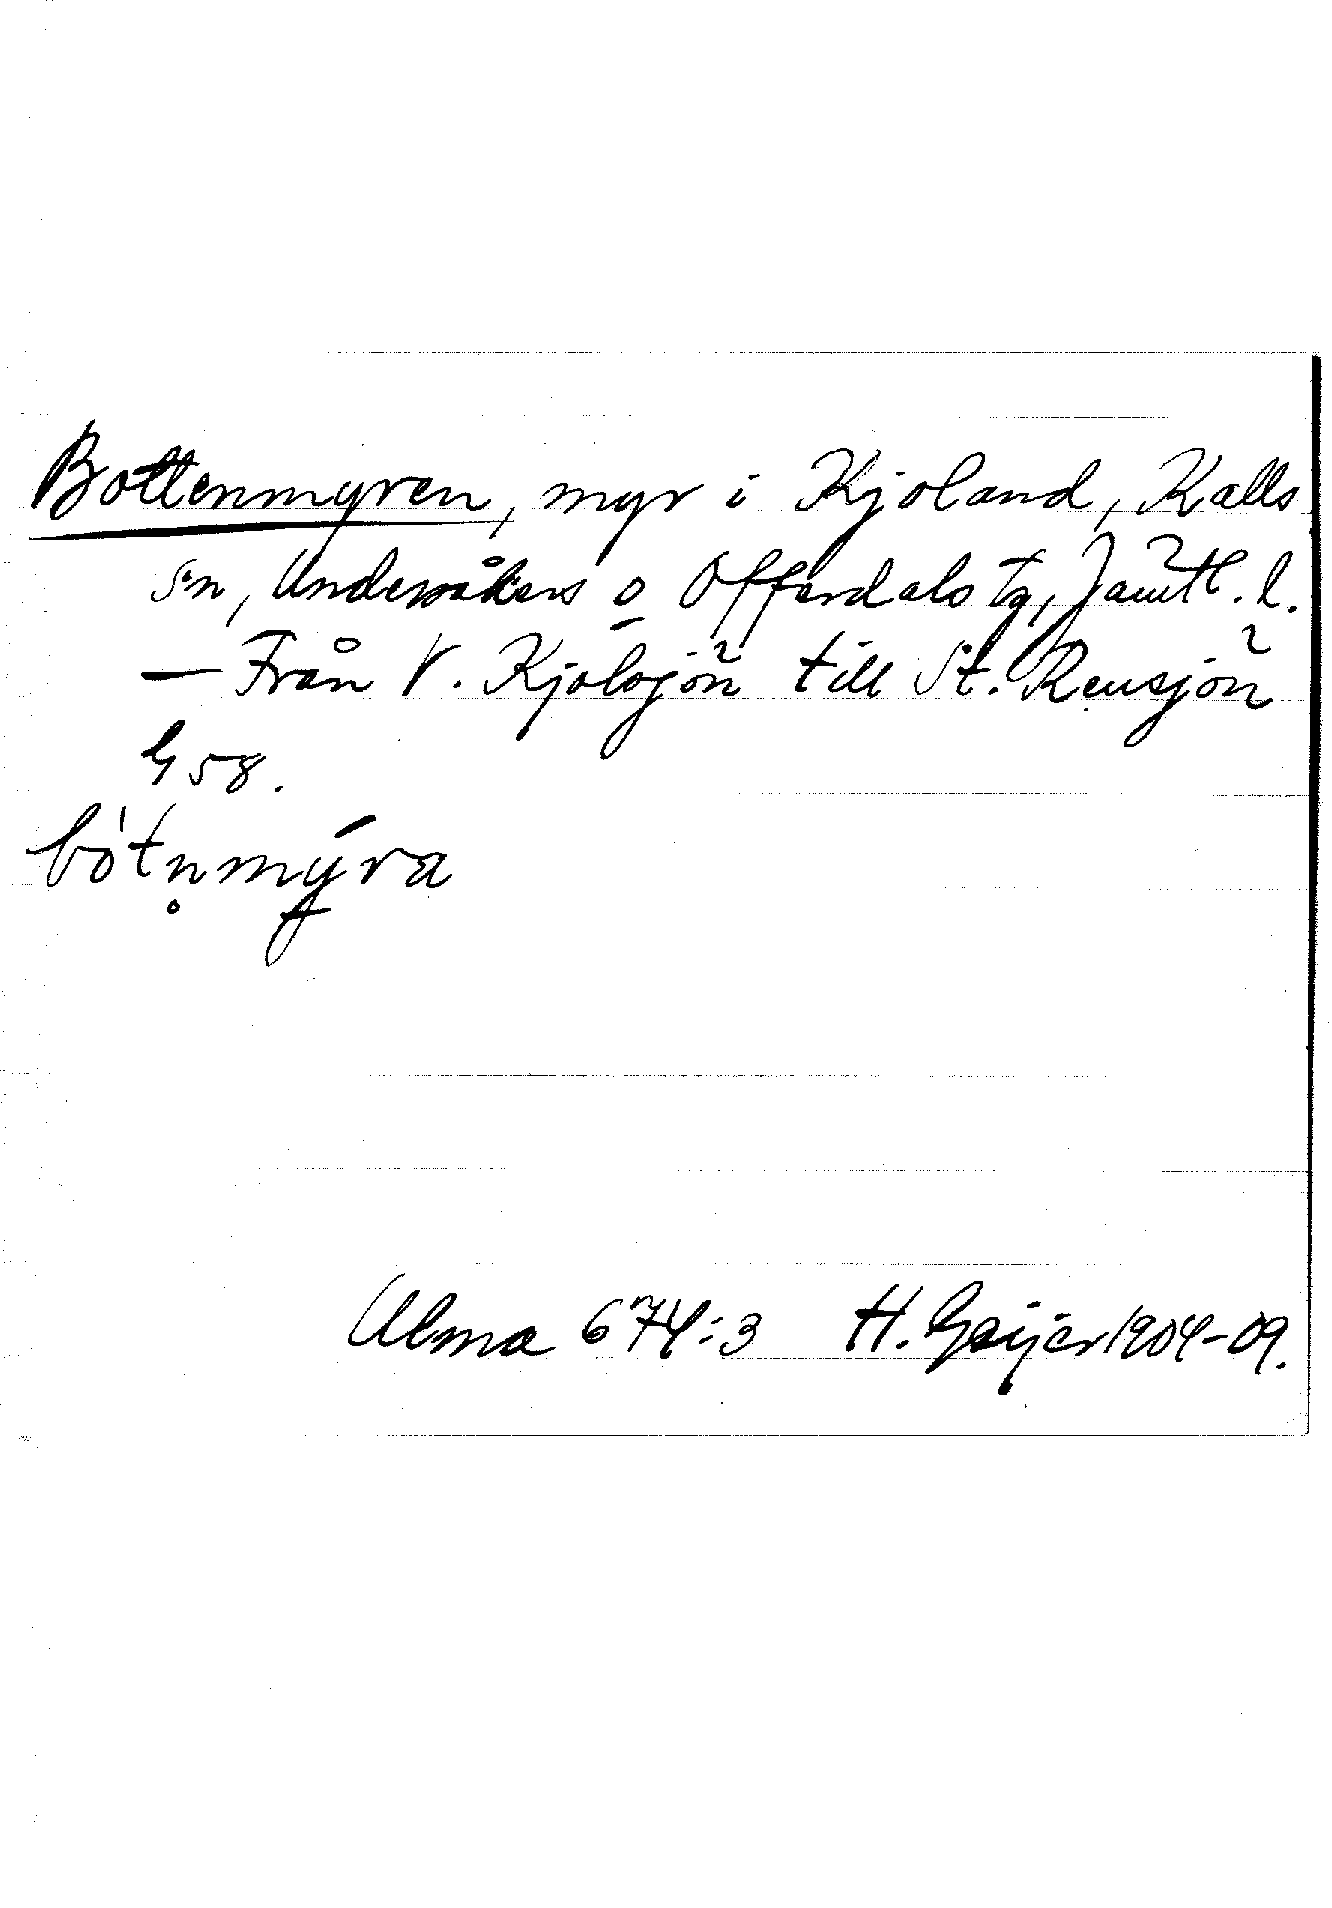 Bottenmyren, myr i Kjoland, Kalls
sn, Undersåkers o Offerdals tg, Jämtl. l.
— Från V. Kjolsjön till St. Rensjön
G 58.
bòtn̥mýra
Ulma 674:3 H. Geijer 1904-09.